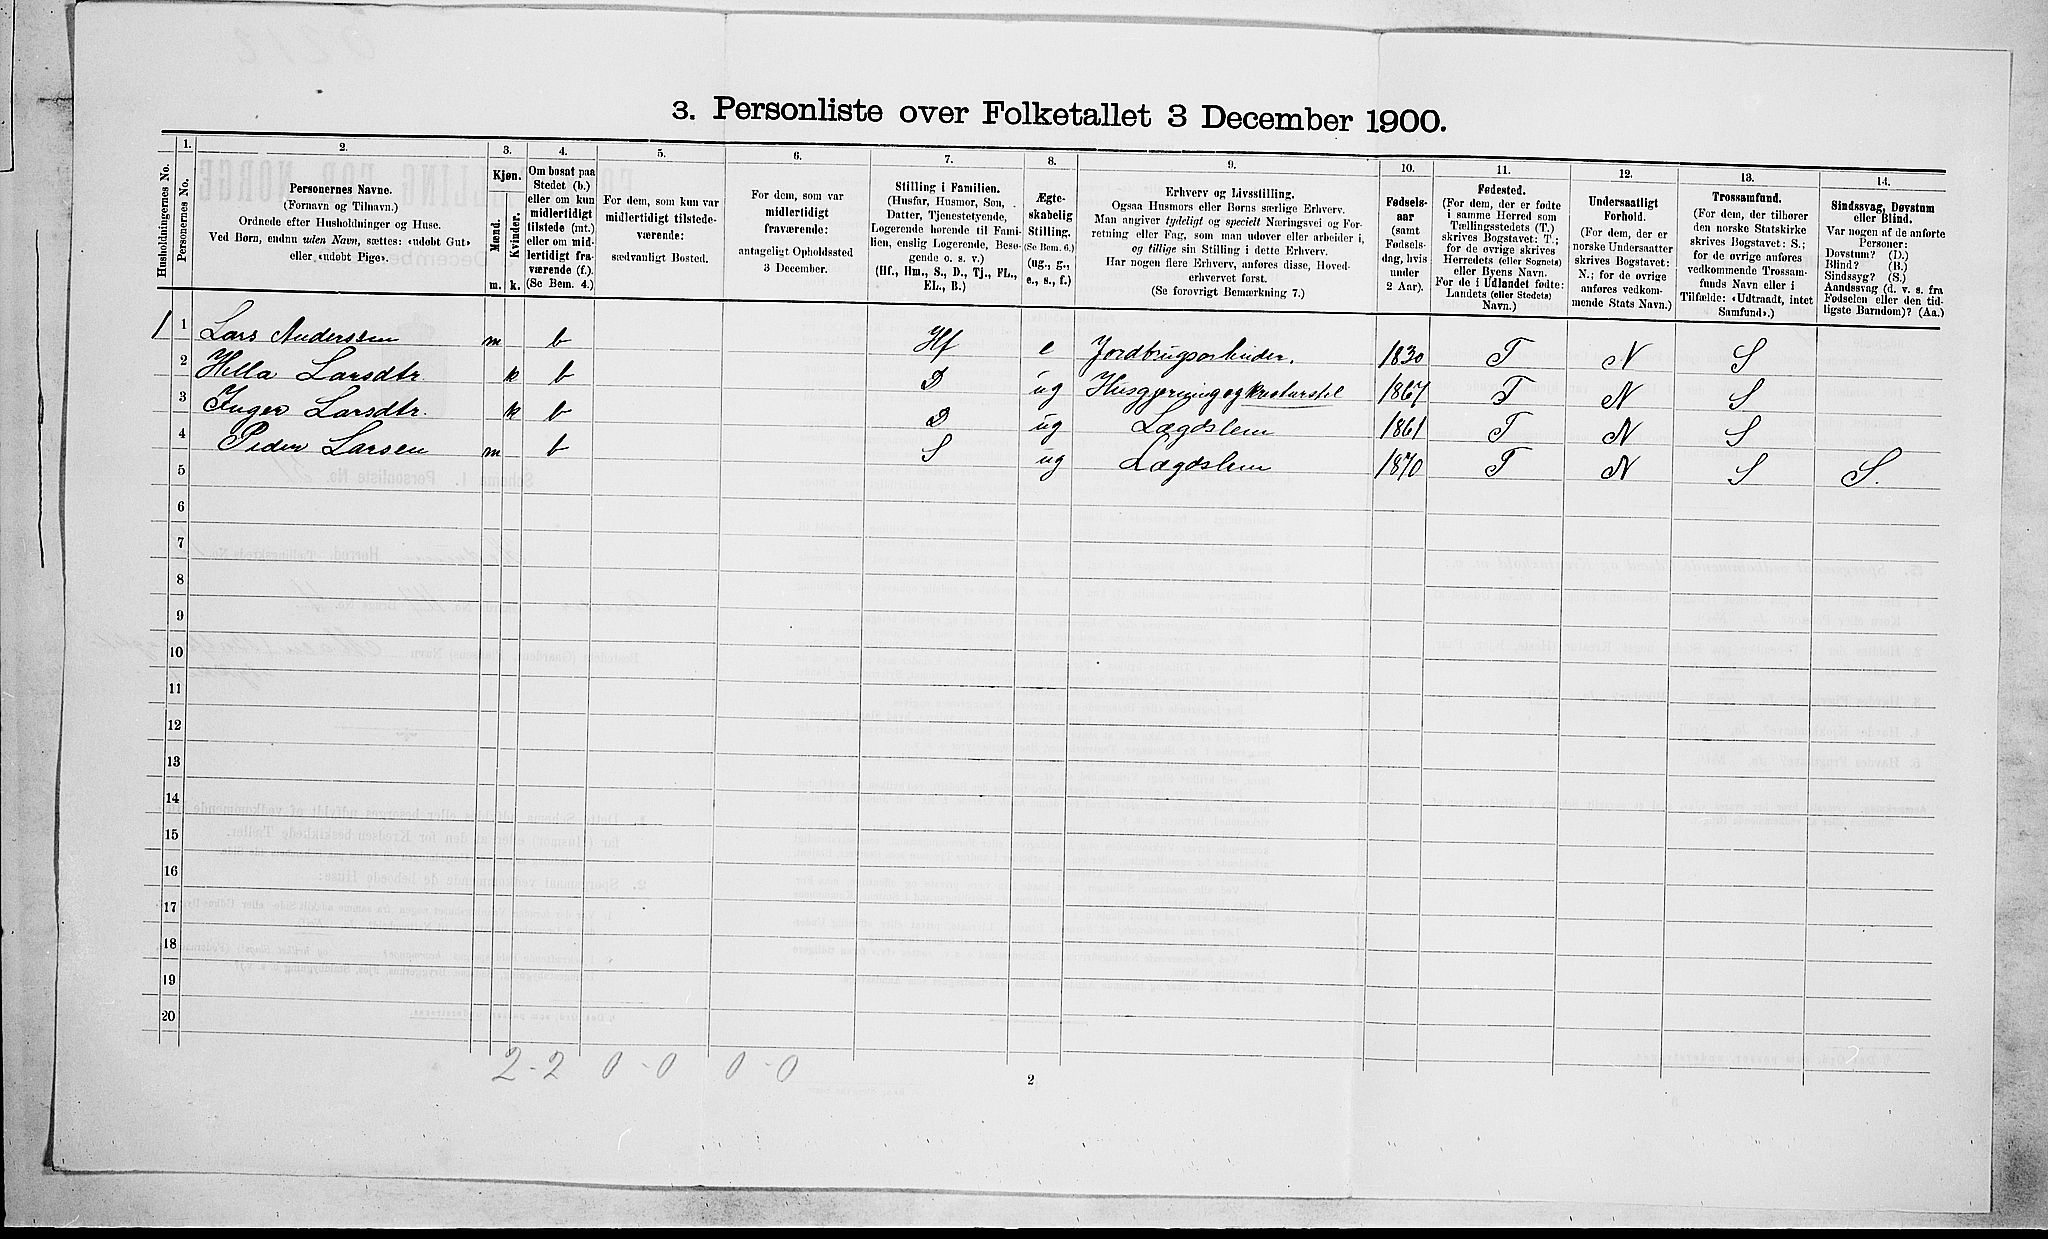 3. Personliste over Folketallet 3 December 1900.
Husholdningernes No.
1.
Personernes No.
2.
Personernes Navne.
(Fornavn og Tilnavn.)
Ordnede efter Husholdninger og Huse.
Ved Børn, endnu uden Navn, sættes: «udøbt Gut»
eller «udøbt Pige».
3.
Kjøn.
Mænd.
Kvinder.
m. k.
4.
Om bosat paa
Stedet (b.)
eller om kun
midlertidigt
tilstede (mt.)
eller om mid-
lertidigt fra-
værende (f.).
(Se Bem. 4.)
5.
For dem, som kun var
midlertidigt tilstede-
værende:
sædvanligt Bosted.
6.
For dem, som var
midlertidigt
fraværende:
antageligt Opholdssted
3 December.
7.
Stilling i Familien.
(Husfar, Husmor, Søn,
Datter, Tjenestetyende,
Logerende hørende til Fami-
lien, enslig Logerende, Besø-
gende o. s. v.)
(Hf., Hm., S., D., Tj., FL.,
EL., B.)
8.
Ægte-
skabelig
Stilling.
(Se Bem. 6.)
(ug., g.,
e., s., f.)
9.
Erhverv og Livsstilling.
Ogsaa Husmors eller Børns særlige Erhverv.
Man angiver tydeligt og specielt Næringsvei og For-
retning eller Fag, som man udøver eller arbeider i,
og tillige sin Stilling i dette Erhverv.
Har nogen flere Erhverv, anføres disse, Hoved-
erhvervet først.
(Se forøvrigt Bemærkning 7.)
10.
Fødsels-
aar
(samt
Fødsels-
dag, hvis
under
2 Aar).
11.
Fødested.
(For dem, der er fødte
i samme Herred som
Tællingsstedets (T.)
skrives Bogstavet: T.;
for de øvrige skrives
Herredets (eller Sognets)
eller Byens Navn.
For de i Udlandet fødte:
Landets (eller Stedets)
Navn.)
12.
Undersaatligt
Forhold.
(For dem, der er
norske Undersaatter
skrives Bogstavet:
N.; for de øvrige
anføres vedkom-
mende Stats Navn.)
13.
Trossamfund.
(For dem, der tilhører
den norske Statskirke
skrives Bogstavet: S.;
for de øvrige anføres
vedkommende Trossam-
funds Navn eller i
Tilfælde: «Udtraadt, intet
Samfund».)
14.
Sindssvag, Døvstum
eller Blind.
Var nogen af de anførte
Personer:
Døvstum? (D.)
Blind? (B.)
Sindssyg? (S.)
Aandssvag (d. v. s. fra
Fødselen eller den tid-
ligste Barndom)? (Aa.)
1 1 Lars Anderssen m b Hf e Jordbrugsarbeider. 1830 T N S
2 Hella Larsdtr. k b D ug Husgjerning og kreaturstel 1867 T N S
3 Inger Larsdtr. k b D ug Lægdslem 1861 T N S
4 Peder Larsen m b S ug Lægdslem 1870 T N S S.
5
6
7
8
9
10
11
12
13
14
15
16
17
18
19
20
2-2 0-0 0-0
2